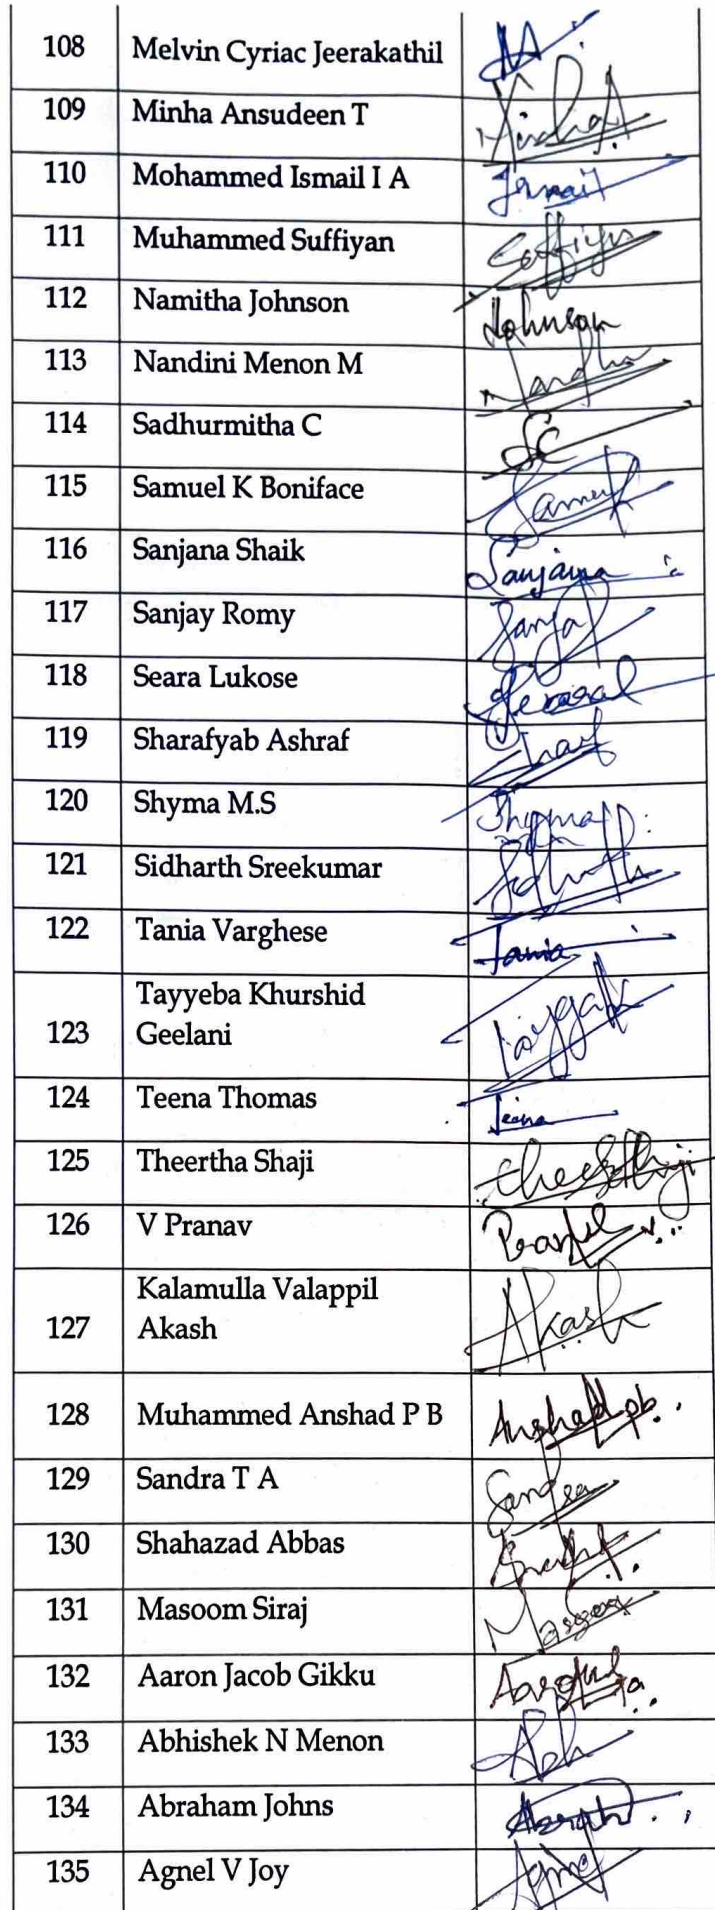 108 Melvin Cyriac Jeerakathil
109 Minha Ansudeen T
110 Mohammed Ismail I A Ismail
111 Muhammed Suffiyan Suffiyan
112 Namitha Johnson Johnson
113 Nandini Menon M
114 Sadhurmitha C SC
115 Samuel K Boniface Samuel
116 Sanjana Shaik Sanjana
117 Sanjay Romy Sanjay
118 Seara Lukose
119 Sharafyab Ashraf Sharaf
120 Shyma M.S Shyma
121 Sidharth Sreekumar
122 Tania Varghese Tania
Tayyeba Khurshid
123 Geelani
124 Teena Thomas Teena
125 Theertha Shaji
126 V Pranav
Kalamulla Valappil
127 Akash Akash
128 Muhammed Anshad P B Anshad pb
129 Sandra T A Sandra
130 Shahazad Abbas
131 Masoom Siraj Masoom
132 Aaron Jacob Gikku
133 Abhishek N Menon Abh
134 Abraham Johns
135 Agnel V Joy Agnel